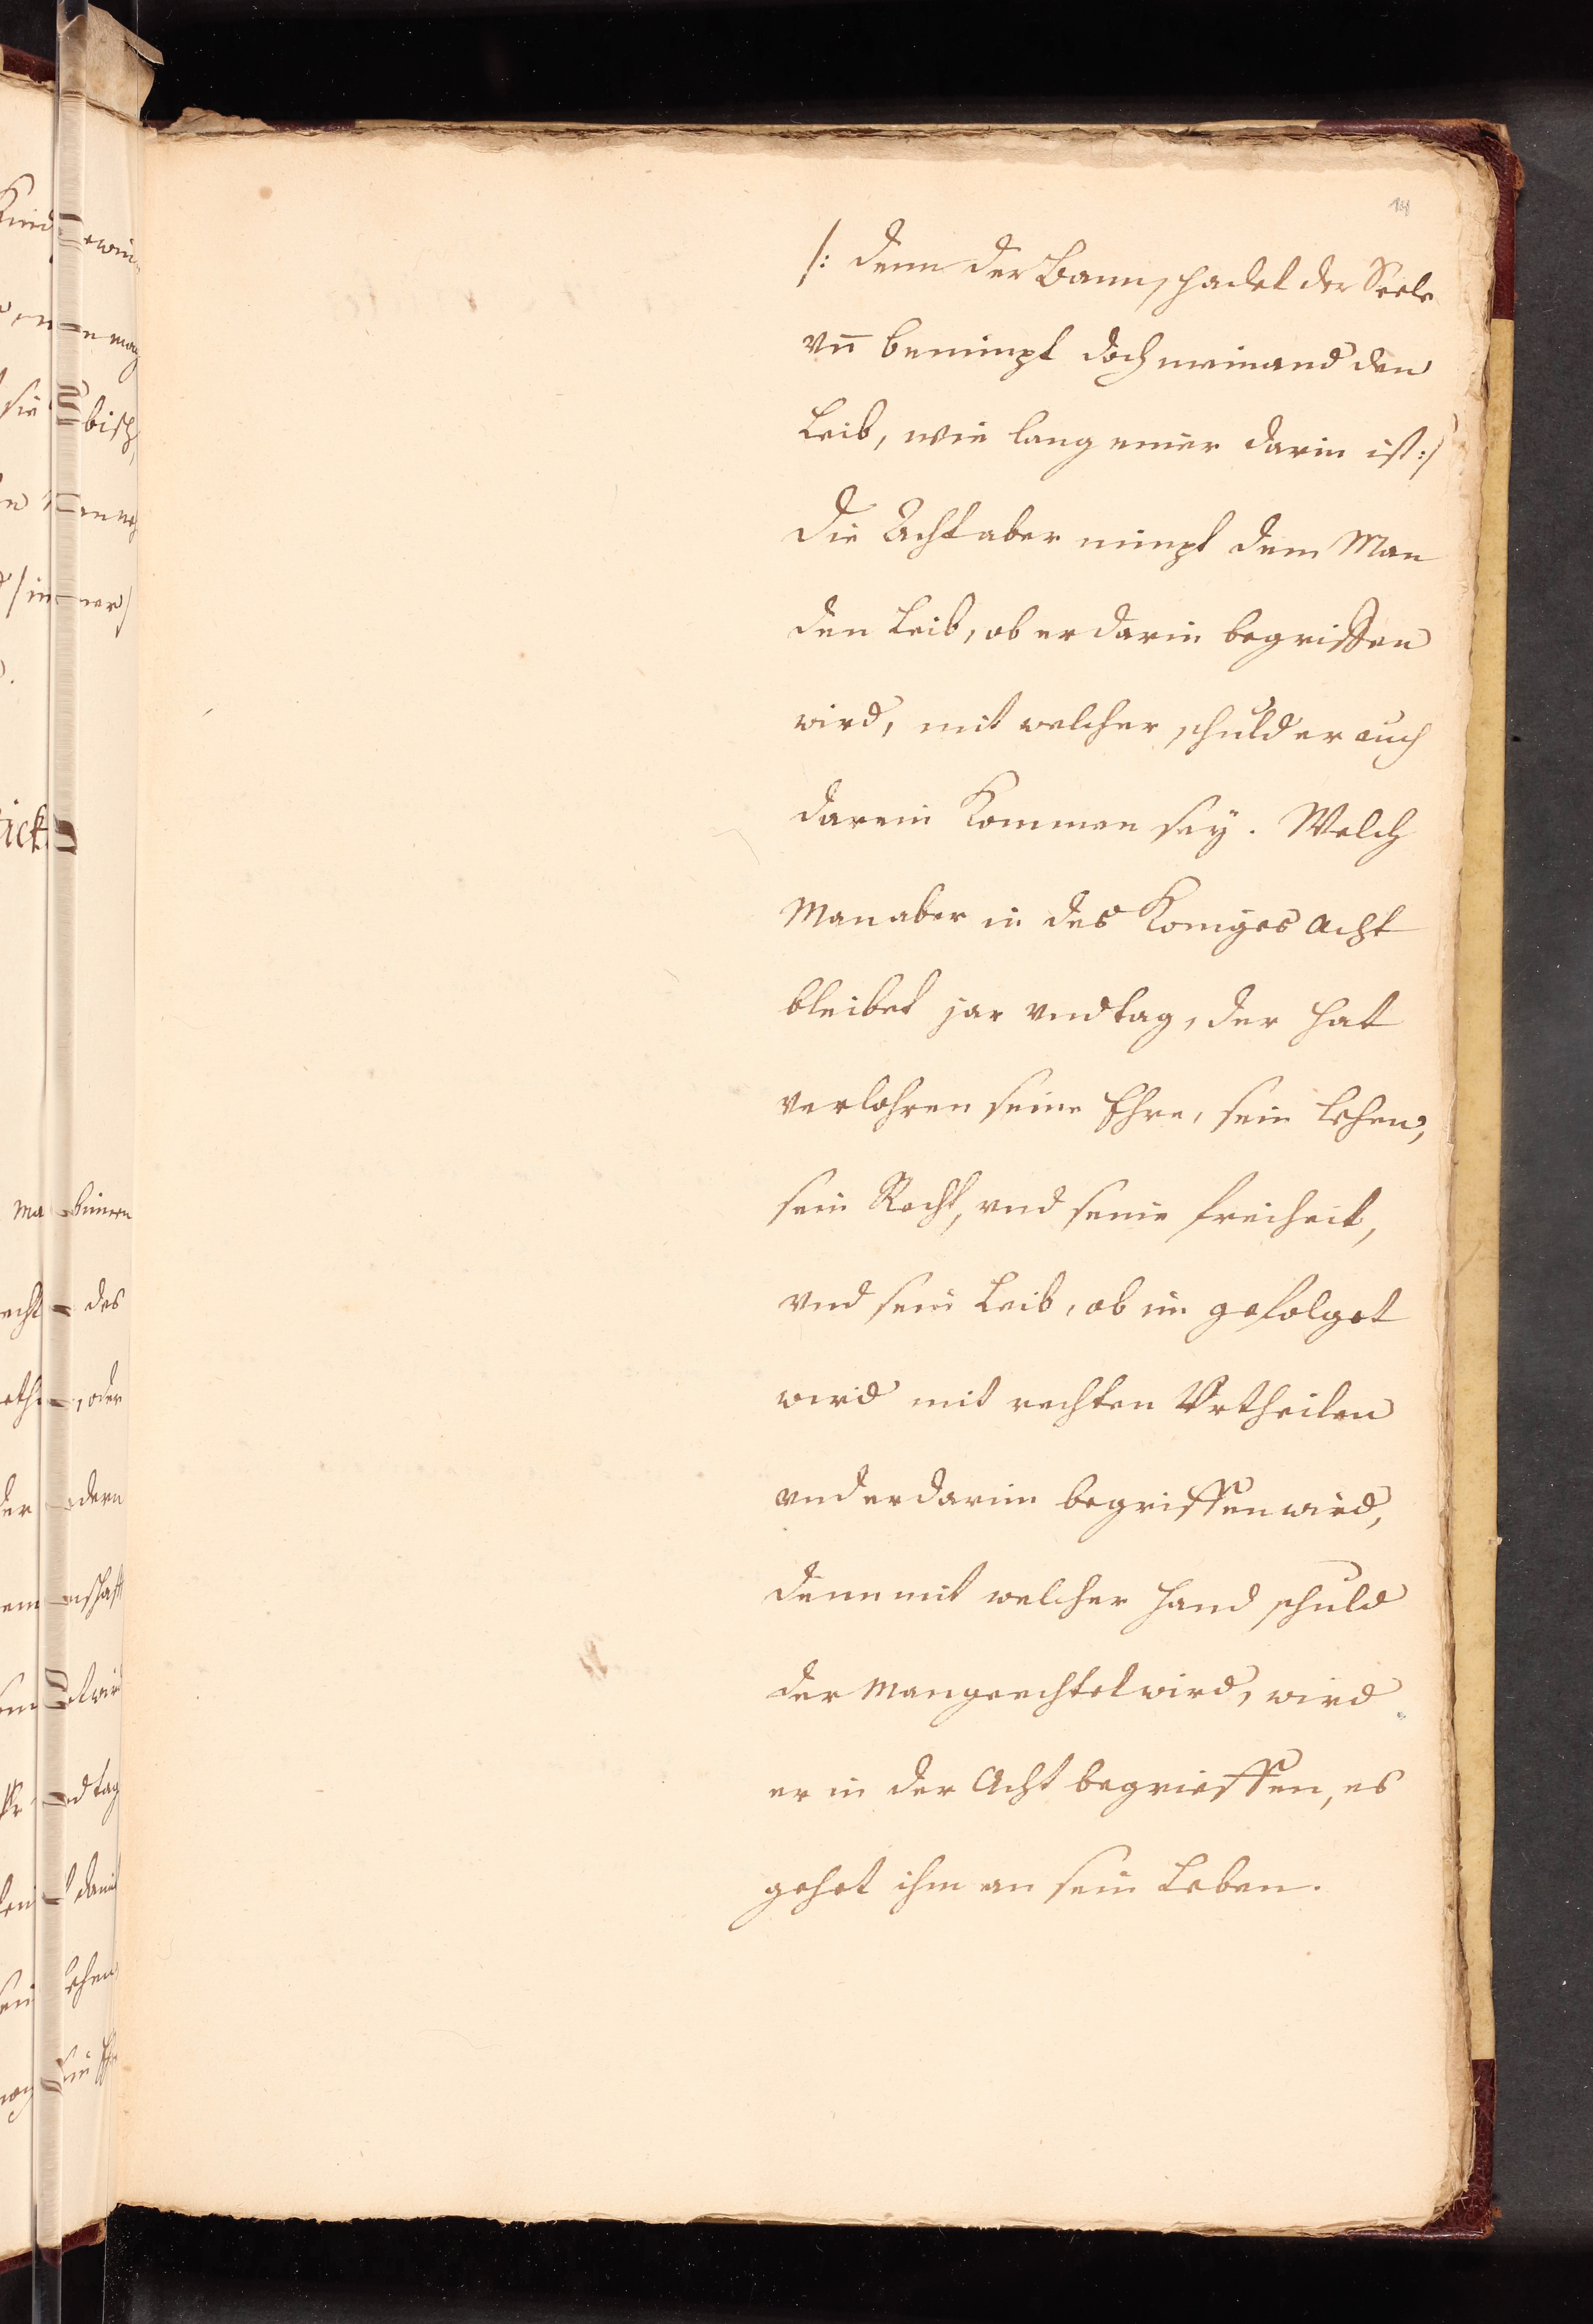 /: denn der Bann schadet der Seele
vn̄ benimpt doch niemand den
Leib, wie lang einer darin ist :/
die Acht aber nimpt dem Man
den Leib, ob er darin begriffen
wird, mit welcher schuld er auch
darein kommen seÿ. Welch
Man aber in des Königes Acht
bleibet jar vnd tag, der hat
verlohren seine Ehre, sein Lehen,
sein Recht, vnd seine freiheit,
vnd sein Leib, ob im gefolget
wird mit rechten Vrtheilen
vnd er darinn begriffen wird,
denn mit welcher hand schuld
der Man geechtet wird, wird
er in der Acht begrieffen, es
gehet ihm an sein Leben.